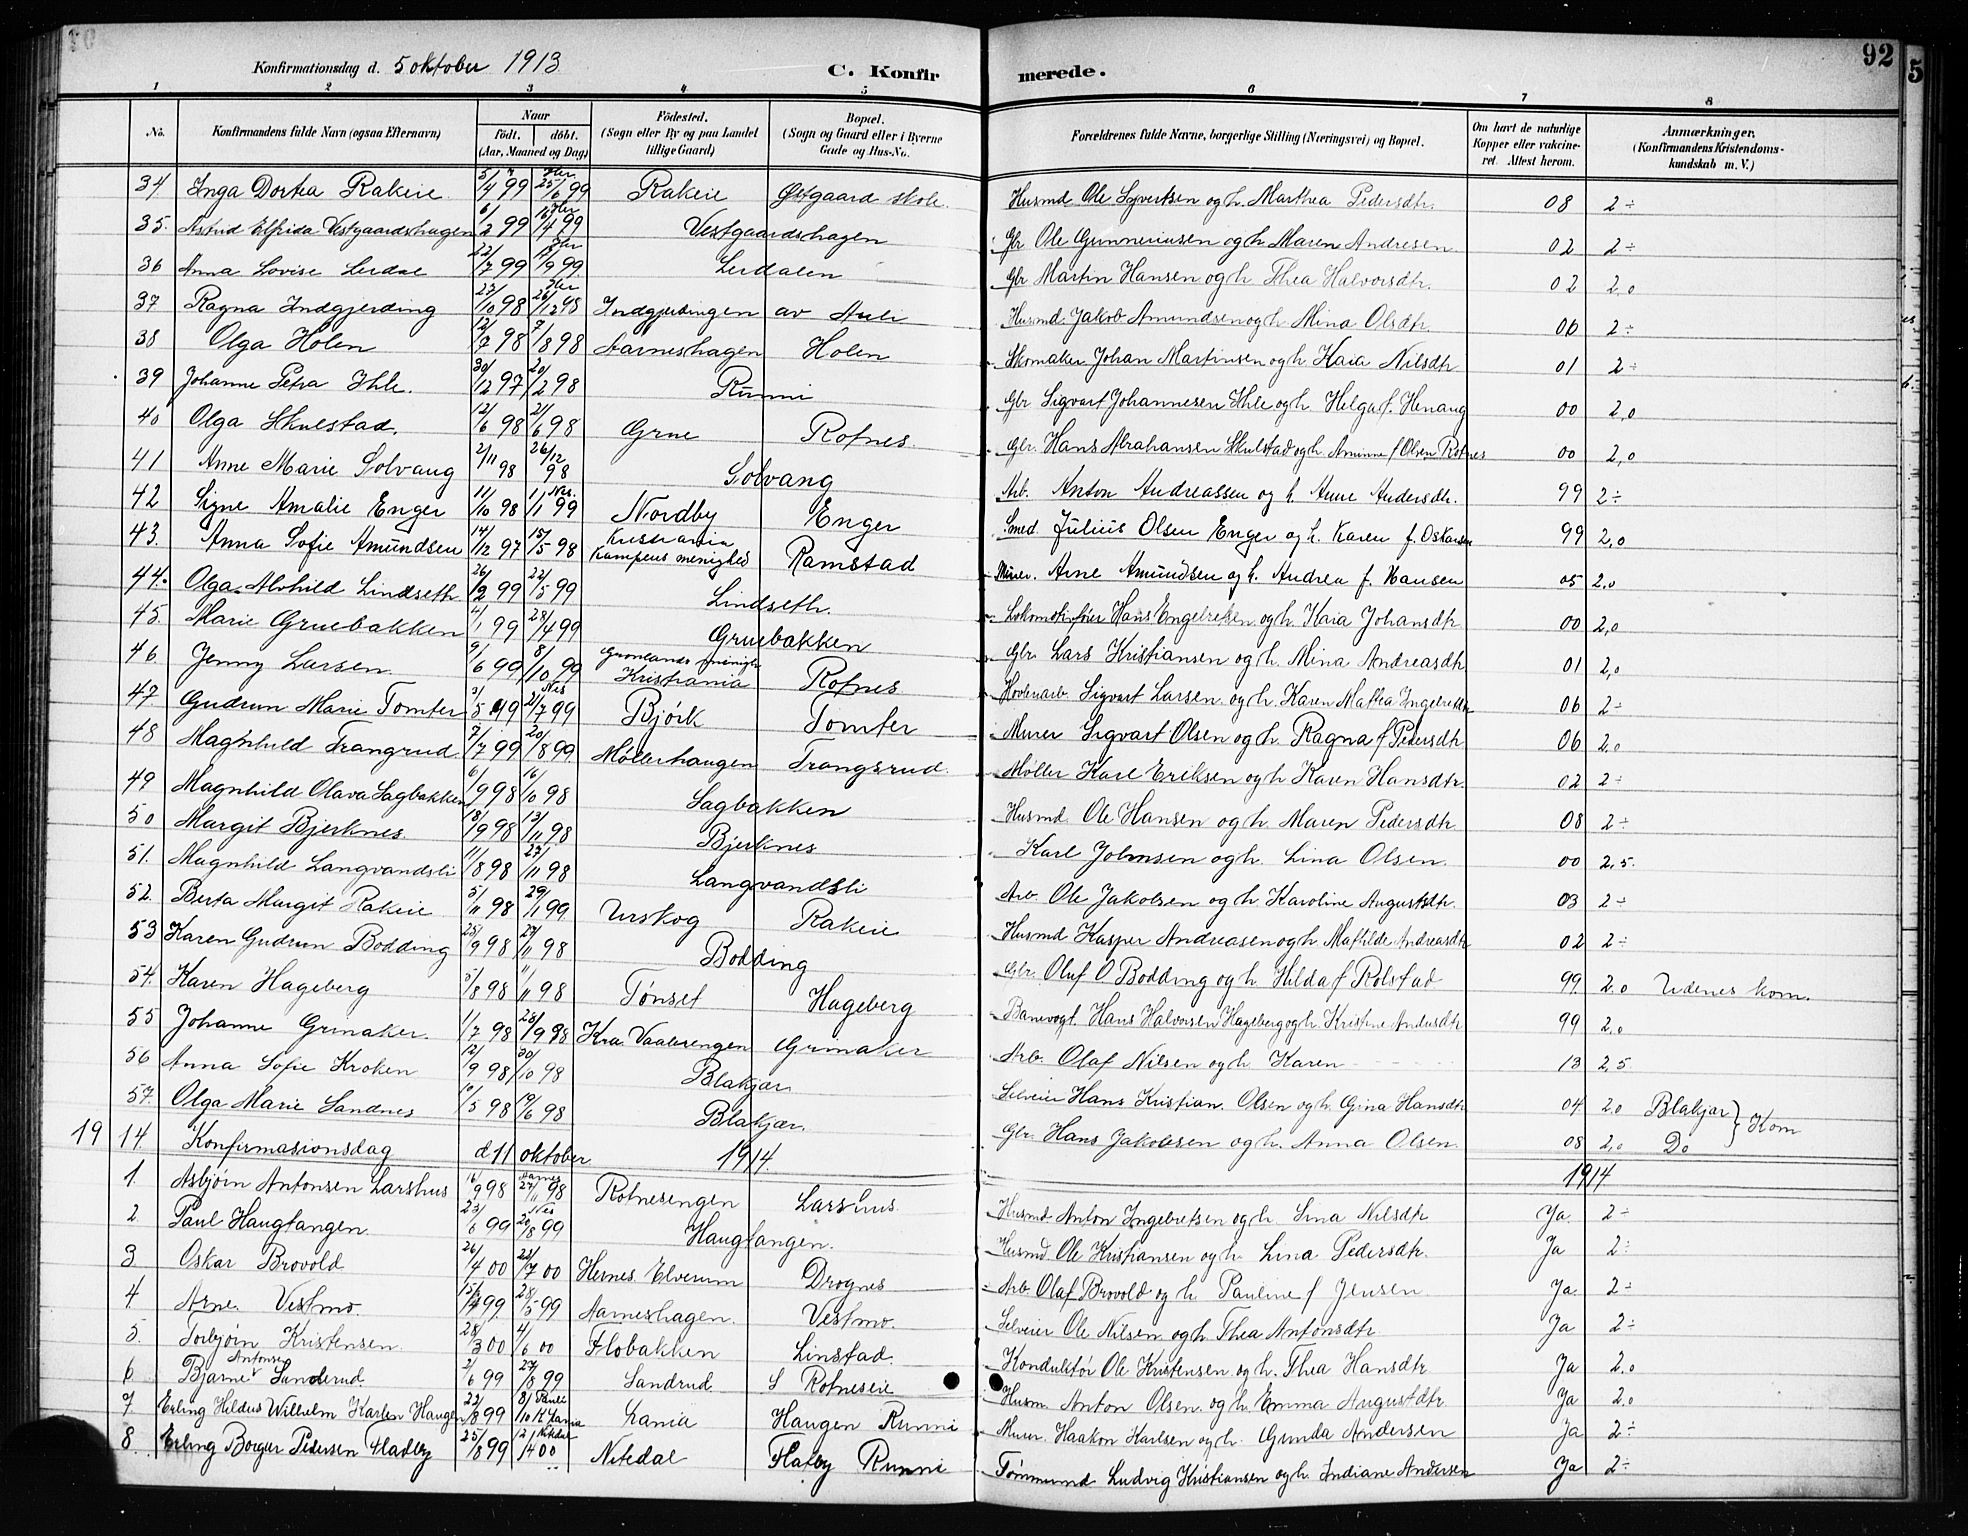 Konfirmationsdag d. 5 oktober 1913 C. Konfirmerede. 92
1 2 3 4 5 6 7 8
No. Konfirmandens fulde Navn (ogsaa Efternavn) Naar født. døbt. (Aar, Maaned og Dag) Fødested. (Sogn eller By og paa Landet tillige Gaard) Bopæl. (Sogn og Gaard eller i Byerne Gade og Hus-No. Forældrenes fulde Navne, borgerlige Stilling (Næringsvei) og Bopæl. Om havt de naturlige Kopper eller vakcineret. Attest herom. Anmærkninger. (Konfirmandens Kristendomskundskab m. V.)
34 Inga Dortea Rakeie 5/4 99 25/6 99 Rakeie Østgaard skole. Husmd Ole Syvertsen og h. Marthea Pedersdtr. 08 2÷
35. Astrid Elfrida Vestgaardshagen 6/2 99 16/4 99 Vestgaardshagen Gbr Ole Gunneriusen og h Maren Andresen 02 2÷
36 Anna Lovise Lerdal 22/7 99 /9 99 Lerdalen Gbr Martin Hansen og h. Thea Halvorsdtr. 02 2,0
37 Ragna Indgjerding 23/10 98 26/12 98 Indgjerdingen av Auli Husmd. Jakob Amundsen og h Mina Olsdtr 06 2÷
38 Olga Holen 12/7 98 7/8 98 Aarneshagen Holen Skomaker Johan Martinsen og h Kaia Nilsdtr 01 2÷
39 Johanne Petra Ihle. 30/12 97 20/2 98 Runni Gbr Sigvart Johannesen Ihle og h. Helga f. Henaug 00 2,0
40 Olga Skulstad. 12/6 98 21/6 98 Grue Rofnes. Gbr. Hans Abrahansen Skulstad og h. Aminne f Olsen Rofnes 00 2,0
41 Anne Marie Solvang 2/11 98 26/12 98 Solvang Arb. Anton Andreassen og h Anne Andersdtr. 99 2÷
42 Signe Amalie Enger 11/10 98 1/1 99 Nes. Nordby Enger Smed Julius Olsen Enger og h. Karen f. Oskarsen 99 2,0
43. Anna Sofie Amundsen 14/12 97 15/5 98 Kristiania Kampens menighed Ramstad Murer. Arne Amundsen og h. Andrea f. Hansen 05 2.0
44. Olga Alvhild Lindseth 26/2 99 22/5 99 Lindseth. Lokomotivfører Hans Engebretsen og h. Kaia Johansdtr 00 2,0
45. Marie Gruebakken /1 99 28/4 99 Gruebakken Gbr Lars Kristiansen og h. Mina Andreasdtr 01 2,0
46. Jenny Larsen 9/6 99 8/10 99 Grønlands menigh Kristiania Rofnes Sigvart Larsen og h. Karen Mathea Ingebretsdtr 06 2÷
47. Gudrun Marie Tomter 3/5 99 2/7 99 Nes Bjørk Tomter Murer Sigvart Olsen og h. Ragna f Pedersdtr 06 2,0
48 Magnhild Trangsrud 7/7 99 20/8 99 Møllerhaugen Trangsrud Møller Karl Eriksen og h Karen Hansdtr. 02 2÷
49 Magnhild Olava Sagbakken 6/9 98 16/10 98 Sagbakken Husmd. Ole Hansen og h. Maren Pedersdtr 08 2÷
50 Margit Bjerknes. 18/9 98 13/11 98 Bjerknes Karl Johnsen og h. Lina Olsen 00 2,5.
51. Magnhild Langvandsli 11/8 98 27/11 98 Langvandsli Arb Ole Jakobsen og h Karoline Augustsdtr. 03 2÷
52. Berta Margit Rakeie 5/11 98 29/1 99 Urskog Rakeie Husmd Kasper Andreasen og h. Mathilde Andreasdtr 02 2÷
53 Karen Gudrun Bodding 25/9 98 27/11 98 Bodding Gbr. Oluf O Bodding og h. Hilda f Rolstad 99. 2.0 Udenes kom.
54. Karen Hageberg 5/8 98 /11 98 Tønset Hageberg Banevogt. Hans Halvorsen Hageberg og h. Kristine Andersdtr 99 2,0
55 Johanne Grinaker 1/7 98 28/9 98 Kra. Vaalerengen Grinaker Arb. Olaf Nilsen og h. Karen 13 2,5
56 Anna Sofie Kroken 12/9 98 30/10 98 Blakjær Selveier Hans Kristian. Olsen og h. Gina Hansdtr 04 2.0 Blakjær } Kom
57. Olga Marie Sandnes 10/5 98 19/6 98 Blakjær. Gbr. Hans Jakobsen og h. Anna Olsen 08 2,0 Do
1914. Konfirmasionsdag d 11 oktober 1914 1914
1. Asbjørn Antonsen Larshus 16/9 98 27/11 98 Rofnesengen Larshus. Husmd Anton Ingebretsen og h. Lina Nilsdtr Ja 2÷
2. Paul Haugtangen 23/6 99 20/8 99 Nes Haugtangen. Husmd. Ole Kristiansen og h. Lina Pedersdtr. Ja 2÷
3 Oskar Brovold 26/4 00 22/7 00 Hernes Elverum Drognes Arb Olaf Brovold og h. Pauline f Jensen Ja 2÷
4. Arne Vestmo 15/4 99 28/5 99 Aarneshagen. Vestmo. Selveier Ole Nilsen og h Thea Antonsdtr Ja 2÷
5. Torbjørn Kristensen. 28/3 00 4/6 00 Flobakken Linstad. Konduktør Ole Kristensen og h. Thea Hansdtr Ja 2.0
6 Bjarne Antonsen Sanderud 2/6 99 27/8 99 Sandrud S Rofneseie Husm. Anton Olsen og h. Emma Augustdtr Ja 2,0
7 Erling Hildus Wilhelm Karlen Haugen 22/8 99 8/10 Kr.ania Haugen Runni Murer. Haakon Karlsen og h. Gunda Andersen Ja 2÷
8 Erling Borger Pedersen Flatby 25/8 99 /4 00 Nitedal Nitedal Flatby Runni Tømmermd Ludvig Kristiansen og h. Indiane Andersen Ja 2÷